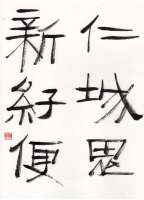 仁城思
新便